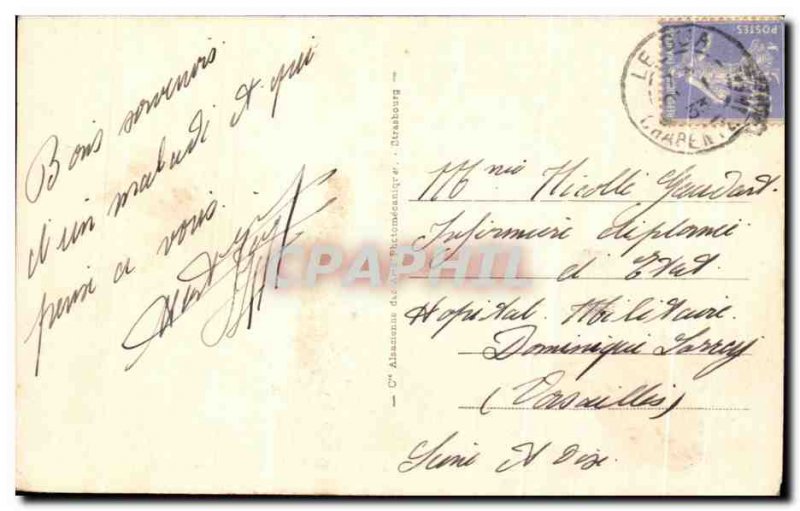 Bons souvenirs
d'un maladi et qui
pense a vous.
Albert
Cie Alsacienne des Arts Photomécaniques - Strasbourg
POSTES
LE GUA
CHARENTE
Mme Nicolle Goudard
Infirmiere diplomé
d'Etat
Hopital Militaire
Dominique Larrey
(Versailles)
Seine et Oise
CPARAMA